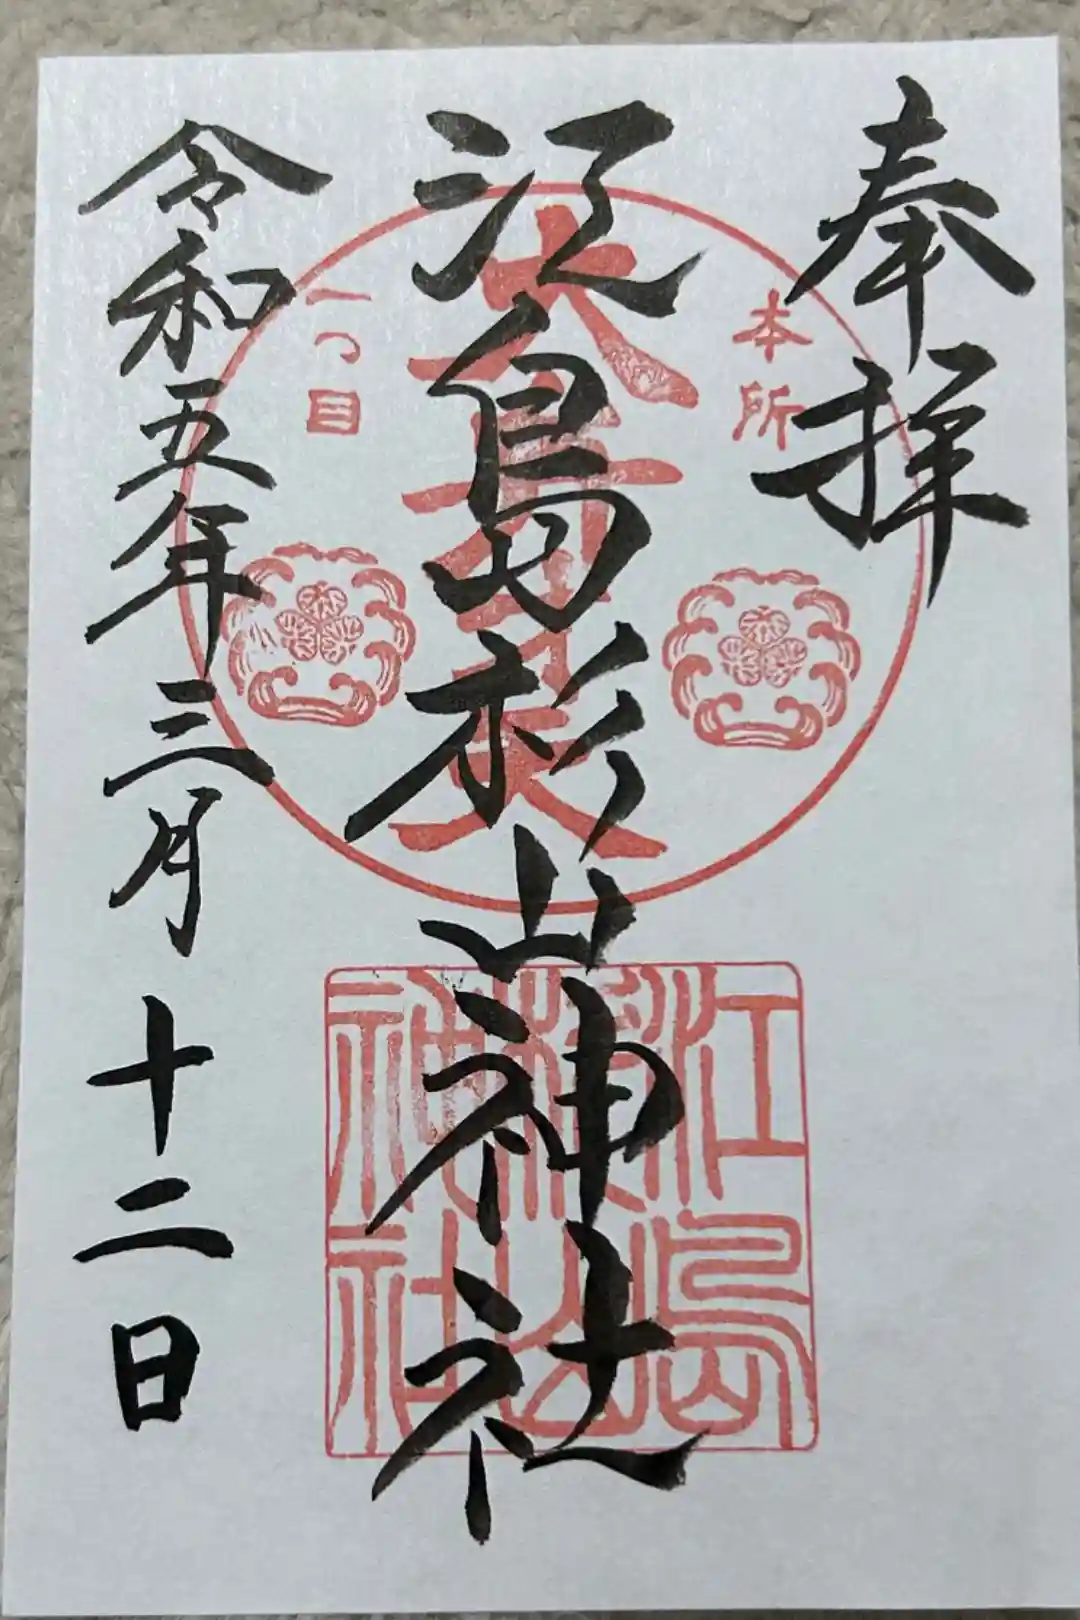 奉拝
本所
一つ目
大弁才天
江島杉山神社
江島
杉山
神社
令和五年三月十二日